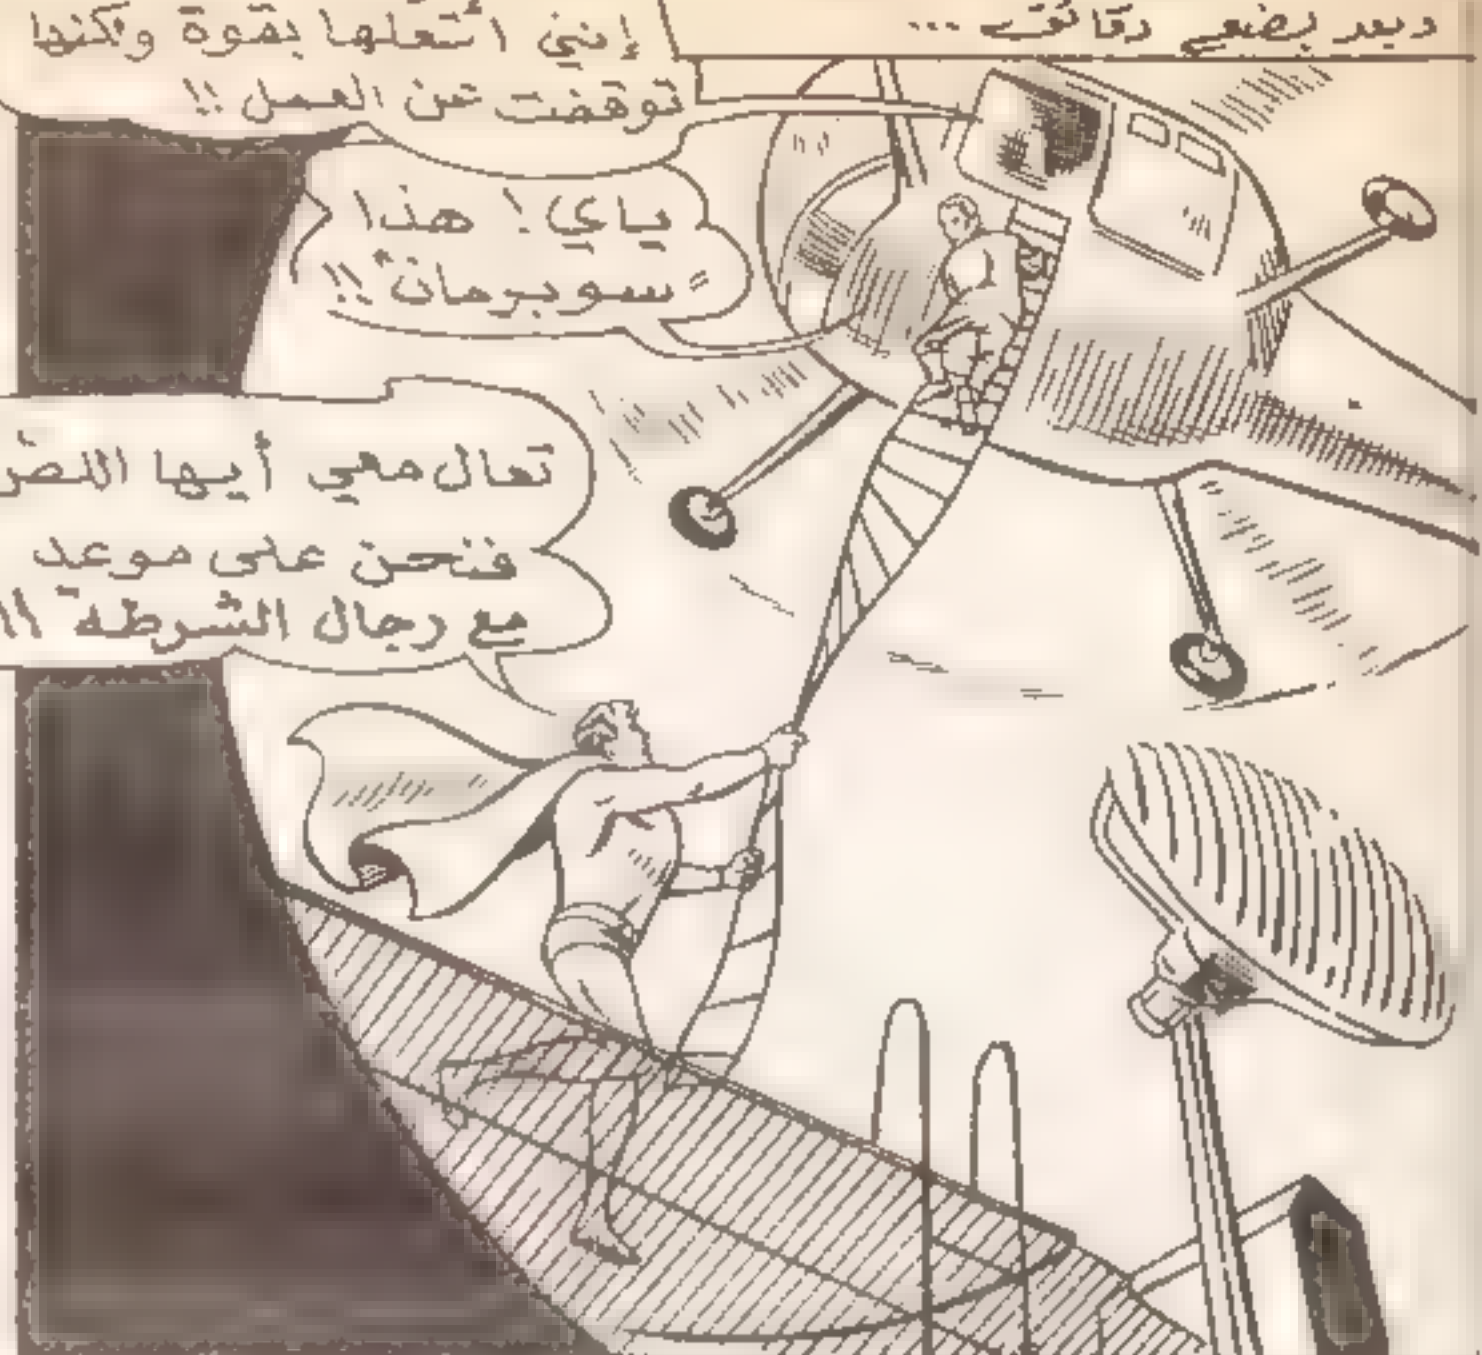 وبعد بضع دقائق ...
إنني أشغلها بقوة ولكنها
توقفت عن العمل !!
ياي ! هذا
"سوبرمان" !!
تعال معي أيها اللص
فنحن على موعد
مع رجال الشرطة !!